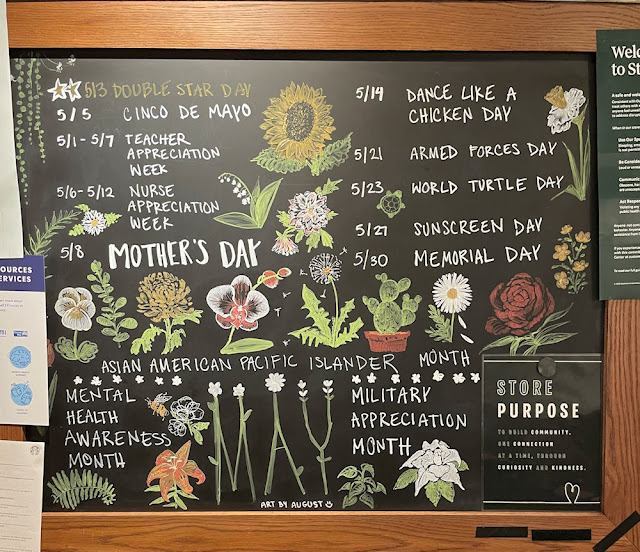 5/3 DOUBLE STAR DAY
5/5 CINCO DE MAYO
5/1 - 5/7 TEACHER
APPRECIATION
WEEK
5/6 - 5/12 NURSE
APPRECIATION
WEEK
5/8 MOTHER'S DAY
5/14 DANCE LIKE A
CHICKEN DAY
5/21 ARMED FORCES DAY
5/23 WORLD TURTLE DAY
5/27 SUNSCREEN DAY
5/30 MEMORIAL DAY
ASIAN AMERICAN PACIFIC ISLANDER MONTH
MENTAL
HEALTH
AWARENESS
MONTH
MAY
MILITARY
APPRECIATION
MONTH
ART BY AUGUST
STORE
PURPOSE
TO BUILD COMMUNITY,
ONE CONNECTION
AT A TIME, THROUGH
CURIOSITY AND KINDNESS.
Welc
to St
A safe and welc
Use Our Spa
Be Consider
Communic
Act Respon
OURCES
RVICES